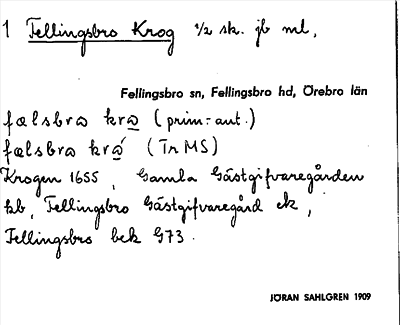 1 Fellingsbro Krog 1/2 sk. jb ml,
Fellingsbro sn, Fellingsbro hd, Örebro län
fælsbrω krω̲ (prim.-ant.)
fælsbrω krώ̲ (Tr MS)
Krogen 1655, Gamla Gästgifvaregården
kb, Fellingsbro Gästgifvaregård ek,
Fellingsbro bek G73.
JÖRAN SAHLGREN 1909